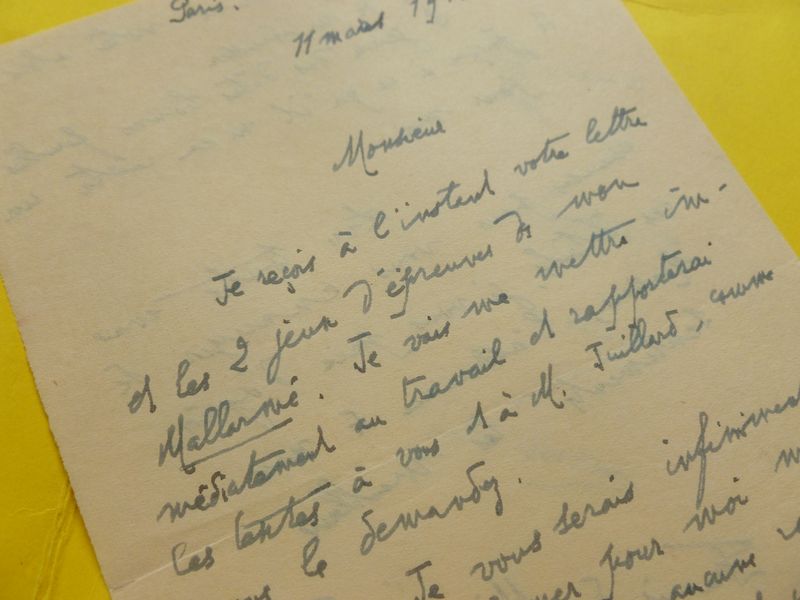 Paris.
11 mars 19
Monsieur
Je reçois à l'instant votre lettre
et les 2 jeux d'épreuves de mon
Mallarmé. Je vais me mettre im-
médiatement au travail et rapporterai
les textes à vous et à M. Juillard, comme
le demandez.
Je vous serais infiniment
pour moi
aucune